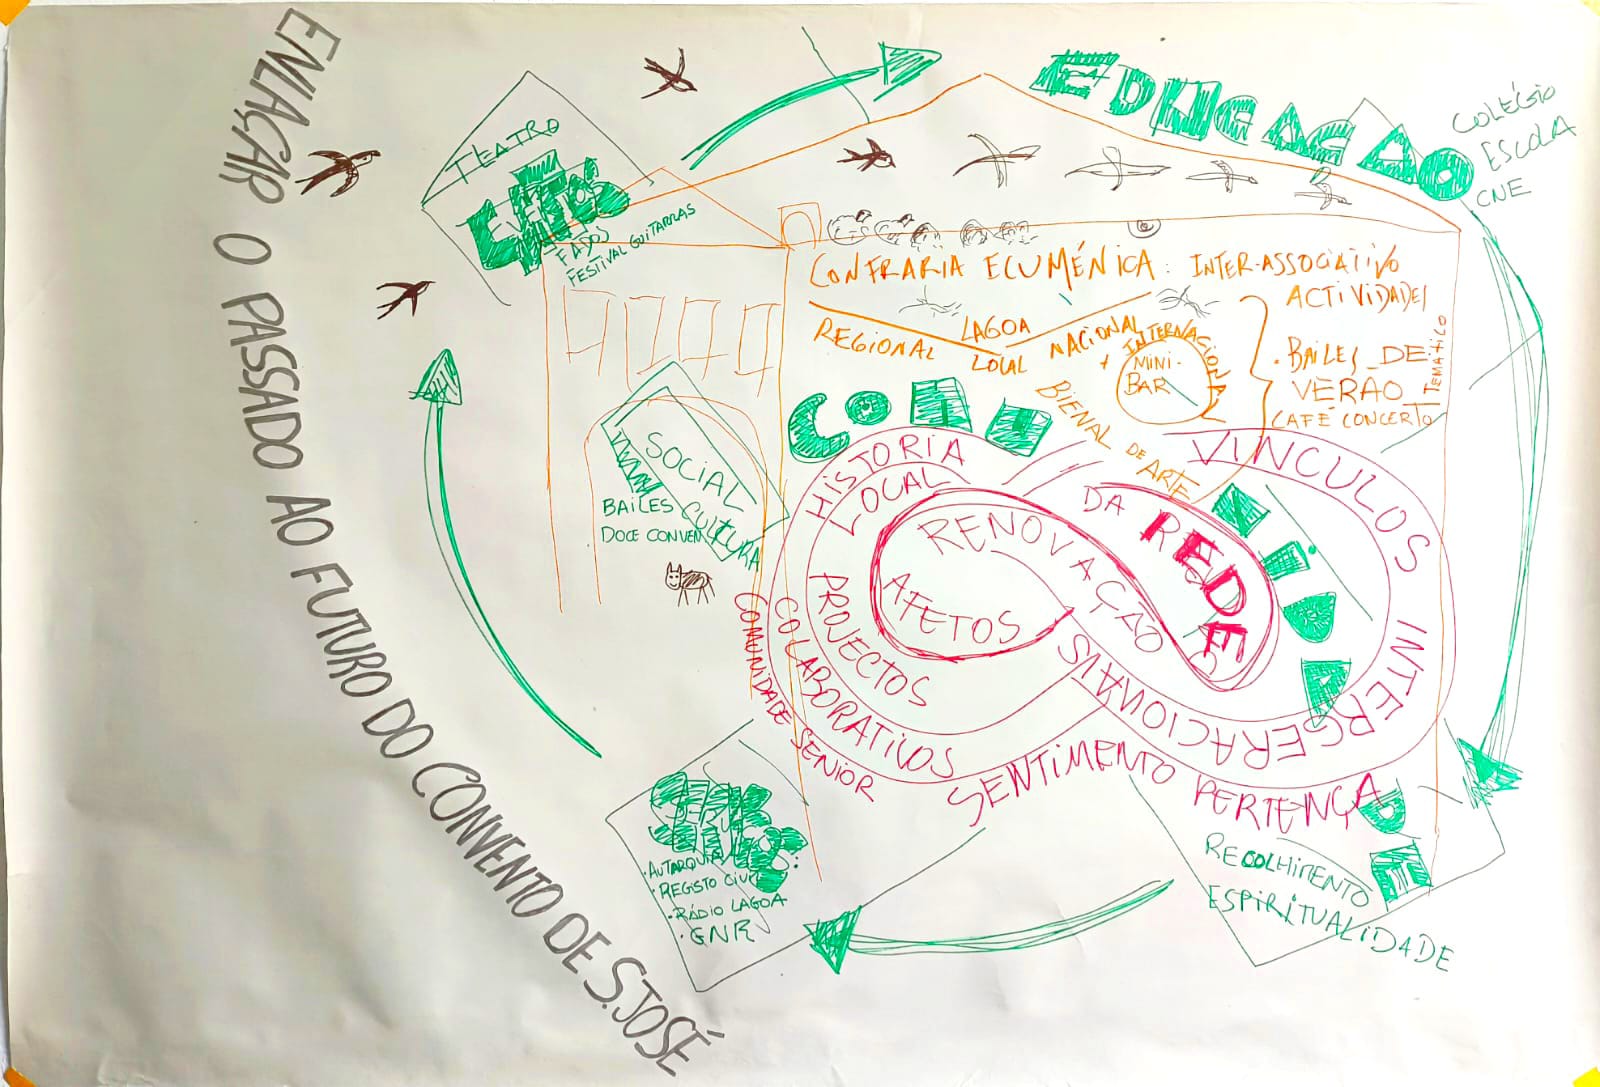 ENLAÇAR O PASSADO AO FUTURO DO CONVENTO DE S.JOSÉ
TEATRO
EVENTOS
FADOS
FESTIVAL GUITARRAS
EDUCAÇAO
COLÉGIO
ESCOLA
CNE
CONFRARIA ECUMÉNICA: INTER-ASSOCIATIVO
ACTIVIDADES
REGIONAL
LAGOA
LOCAL
NACIONAL
+
INTERNACIONAL
MINI-
BAR
BIENAL DE ARTE
. BAILES DE
VERAO
TEMATICO
CAFÉ CONCERTO
SOCIAL
CULTURA
BAILES
DOCE CONVEN
COMU
NIDA
DE
HISTORIA
LOCAL
VINCULOS
INTERGERACIONAIS
DA
REDE
RENOVAÇÃO
AFETOS
PROJECTOS
COLABORATIVOS
COMUNIDADE SENIOR
SENTIMENTO PERTENÇA
RECOLHIMENTO
ESPIRITUALIDADE
. AUTARQUIA
. REGISTO CIVIL
. RÁDIO LAGOA
. GNR